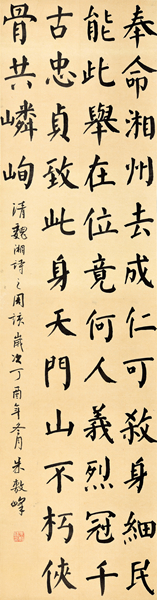 奉命湘州去成仁可殺身細民
能此舉在位竟何人義烈冠千
古忠貞致此身天門山不朽俠
骨共嶙峋
清魏湘詩之周該歲次丁酉年冬月朱敦峰